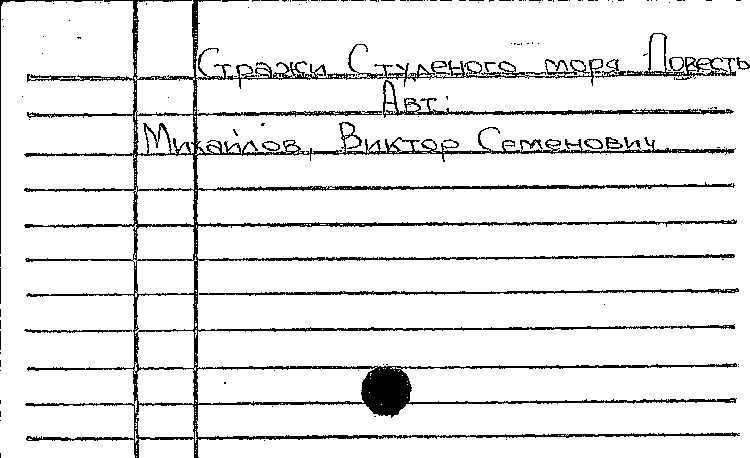 Стражи Студеного моря Повесть
Авт:
Михайлов, Виктор Семенович